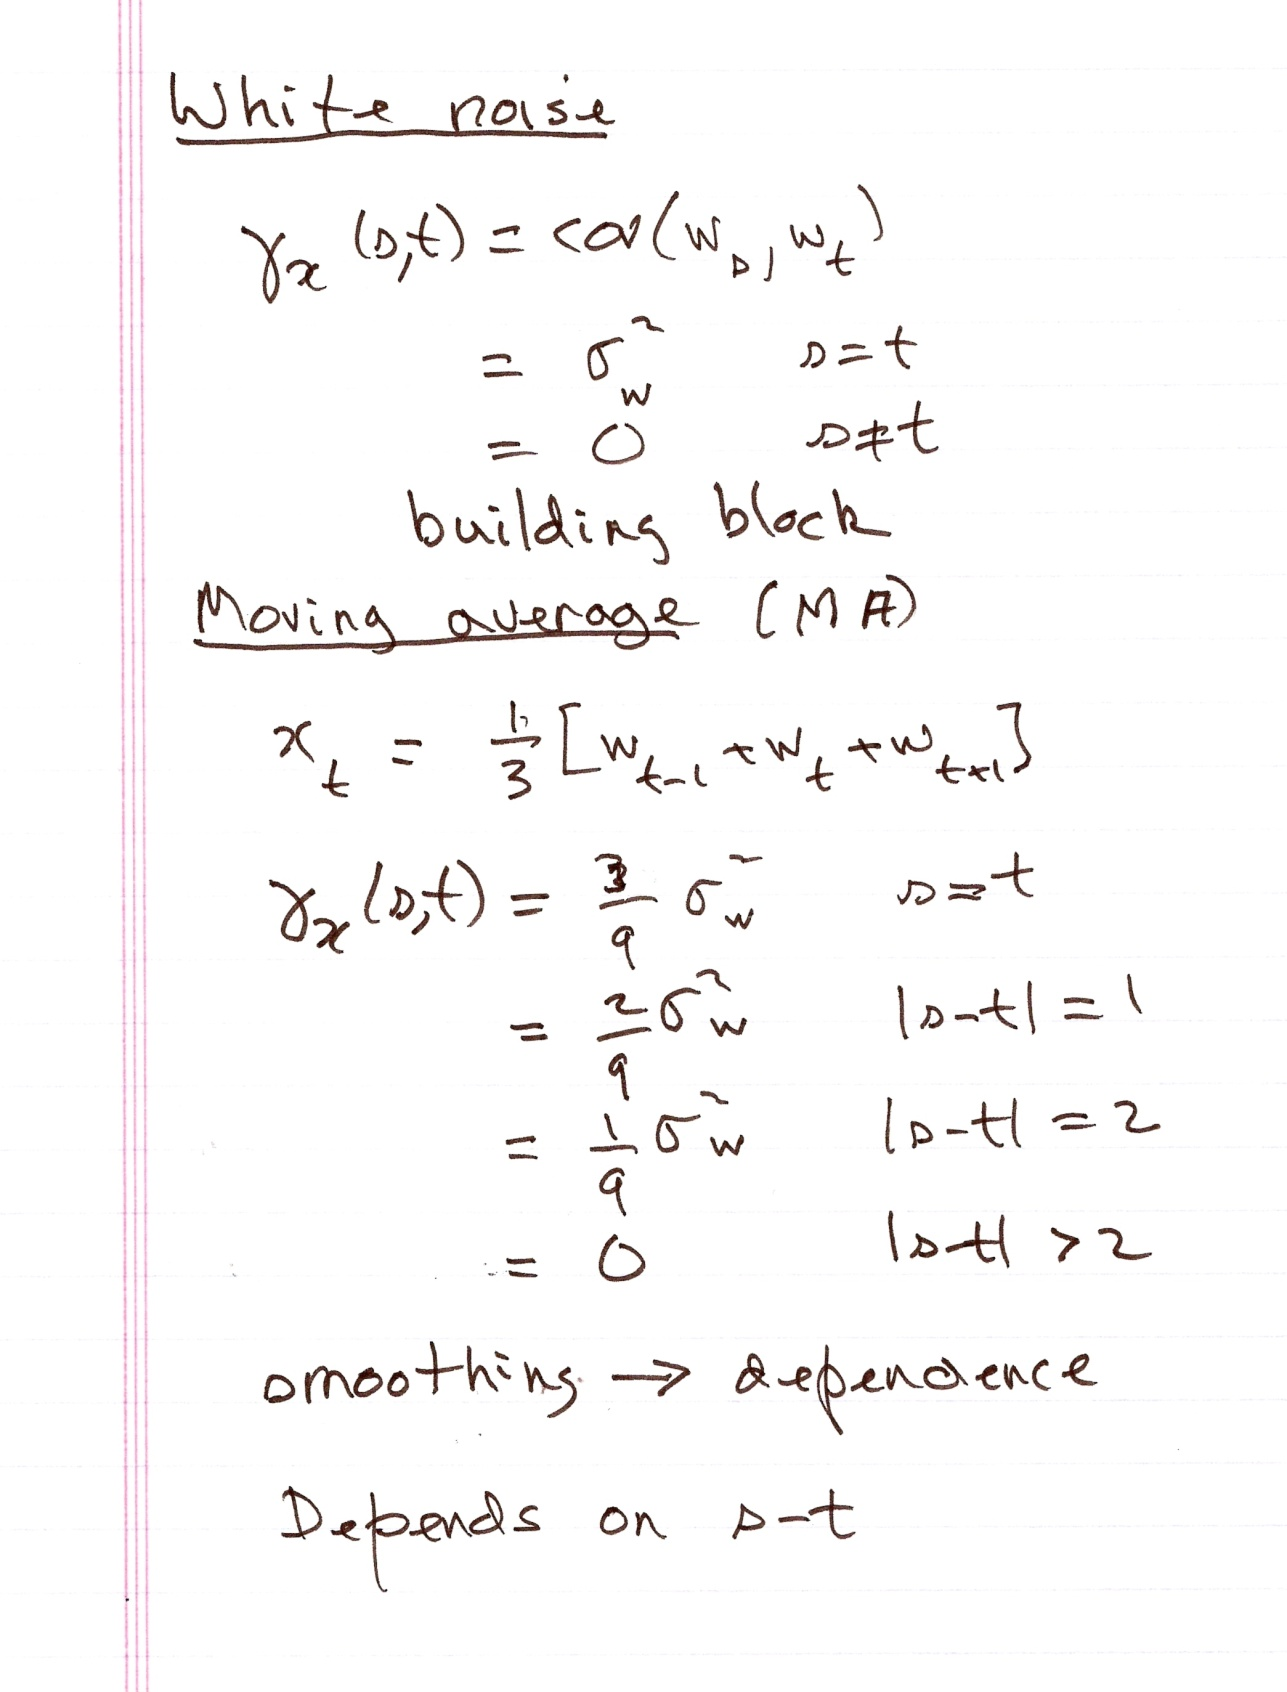 White noise
γ_x (s,t) = cov(w_s, w_t)
= σ_w^2 s=t
= 0 s≠t
building block
Moving average (MA)
x_t = 1/3 [w_{t-1} + w_t + w_{t+1}]
γ_x (s,t) = 3/9 σ_w^2 s=t
= 2/9 σ_w^2 |s-t| = 1
= 1/9 σ_w^2 |s-t| = 2
= 0 |s-t| > 2
smoothing → dependence
Depends on s-t